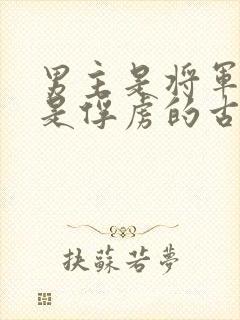 男主是将军
是俘虏的古
扶蘇若夢